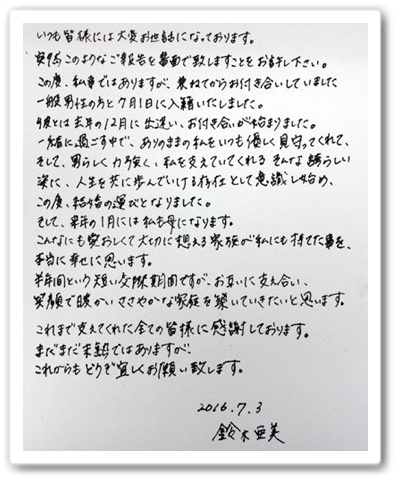 いつも皆様には大変お世話になっております。
突然このようなご報告を書面で致しますことをお許し下さい。
この度、私事ではありますが、兼ねてからお付き合いしていました
一般男性の方と7月1日に入籍いたしました。
彼とは去年の12月に出逢い、お付き合いが始まりました。
一緒に過ごす中で、ありのままの私をいつも優しく見守ってくれて、
そして、男らしく力強く、私を支えていてくれる そんな誇らしい
姿に、人生を共に歩んでいける存在として意識し始め、
この度、結婚の運びとなりました。
そして、来年の1月には私も母になります。
こんなにも愛おしくて大切に想える家族が私にも持てた事を、
本当に幸せに思います。
半年間という短い交際期間ですが、お互いに支え合い、
笑顔で暖かい ささやかな家庭を築いていきたいと思います。
これまで支えてくれた全ての皆様に感謝しております。
まだまだ未熟ではありますが、
これからも どうぞ宜しくお願い致します。
2016.7.3
鈴木亜美